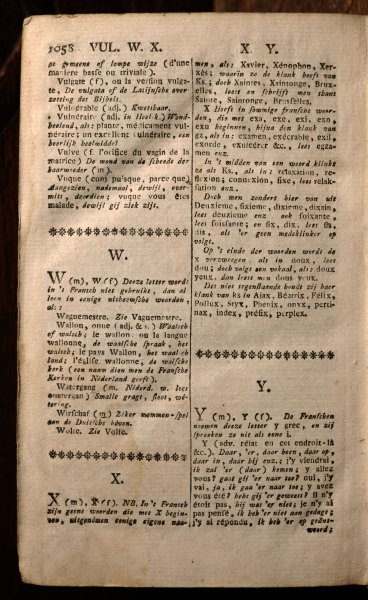 1058 VUL. W. X.
op gemeene of lompe wijze (d'une
maniere basse ou triviale).
Vulgate (f), ou la version vulga-
te, De vulgata of de Latijnsche over-
zetting des Bijbels.
Vulnérable (adj.) Kwetsbaar.
Vulnéraire (adj. in Heel-k.) Wond-
heelend, als: plante, médicament vul-
néraire; un excellent vulnéraire, een
heerlijk heelmiddel
Vulve (f. l'orifice du vagin de la
matrice) De mond van de scheede der
baarmoeder (m).
Vuque (conj puisque, parce que)
Aangezien, nademaal, dewijl, over-
mits, deordien; vuque vous êtes
malade, dewijl gij ziek zijt.
W.
W (m), W (f) Deeze letter wordt
in 't Fransch niet gebruikt, dan al-
leen in eenige uitheemsche woorden,
als:
Waguemestre. Zie Vaguemestre.
Wallon, onne (adj. & s.) Waalsch
of walsch; le wallon ou la langue
wallonne, de waalsche spraak, het
walsch; le pays Wallon, het waalsch
land; l'église wallonne, de walsche
kerk (een naam dien men de Fransche
Kerken in Nederland geeft).
Watergang (m. Néderd. w. lees
ouatergan) Smalle gragt, sloot, we-
tering.
Wirschaf (m) Zeker mommen-spel
aan de Duitsche hoven.
Wolfe. Zie Volfe.
X.
X (m), X (f). NB. In 't Fransch
zijn geene woorden die met X begin-
nen, uitgenomen eenige eigene naa-
X Y.
men, als: Xavier, Xénophon, Xer-
xès; waarin ze de klank heeft van
Ks.; doch Xaintes, Xaintonge, Bruxel-
les, leest en schrijft men thans
Sainte, Saintonge, Brusselles.
X Heeft in sommige fransche woor-
den, die met exa, exe, exi, exo,
exu beginnen, bijna den klank van
gz, als in: examen, exécrable, exil,
exorde, exulcérer &c., lees egza-
men enz.
In 't midden van een woord klinkt
ze als Ks., als in: relaxation, re-
flexion; connexion, fixe, lees relak-
sation enz.
Doch men zondert hier van uit
Deuxieme, sixieme, dixieme, dixain,
lees deuzieme enz. ook soixante,
lees soissante; en fix, dix, lees sis,
dis, als 'er geen medeklinker op
volgt.
Op 't einde der woorden wordt de
x verzweegen, als in doux, lees
dou; doch volgt een vokaal, als: doux
yeux, dan leest men douz yeux.
Des niet tegenstaande houdt zij haar
klank van ks in Ajax, Béatrix, Félix,
Pollux, Styx, Phénix, onyx, perti-
nax, index, préfix, perplex.
Y.
Y (m), Y (f). De Franschen
noemen deeze letter y grec, en zij
spreeken ze uit als eene i.
Y (adv. rélat. en cet endroit-là
&c.). Daar, 'er, daar heen, daar op,
daar in, daar bij enz.; j'y viendrai,
ik zal 'er (daar) komen; y allez
vous? gaat gij 'er naar toe? oui, j'y
vai, ja, ik gaa 'er naar toe; y avez
vous été? hebt gij 'er geweest? il n'y
étoit pas, hij was 'er niet; je n'y ai
pas pensé, ik heb 'er niet aan gedagt;
j'y ai répondu, ik heb 'er op geänt-
woord;